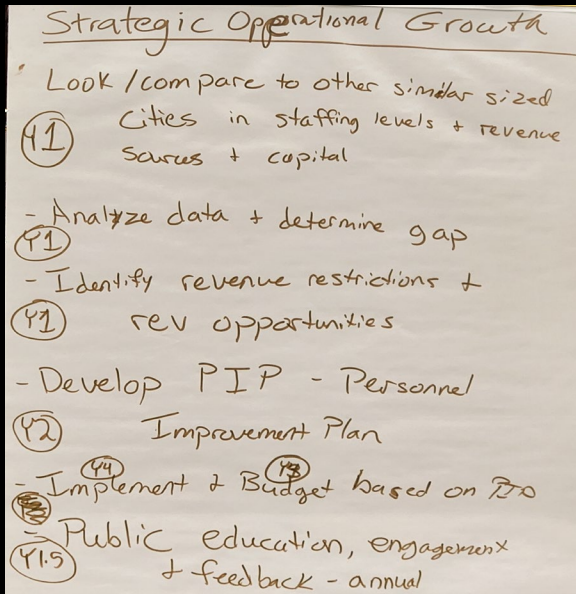 Strategic Opperational Growth
Look / compare to other similar sized
Cities in staffing levels + revenue
Y1
Sources + capital
- Analyze data + determine gap
Y1
- Identify revenue restrictions +
Y1 rev opportunities
- Develop PIP - Personnel
Y2 Improvement Plan
Y4 Y3
- Implement + Budget based on
- Public education, engagement
Y1.5 + feedback - annual